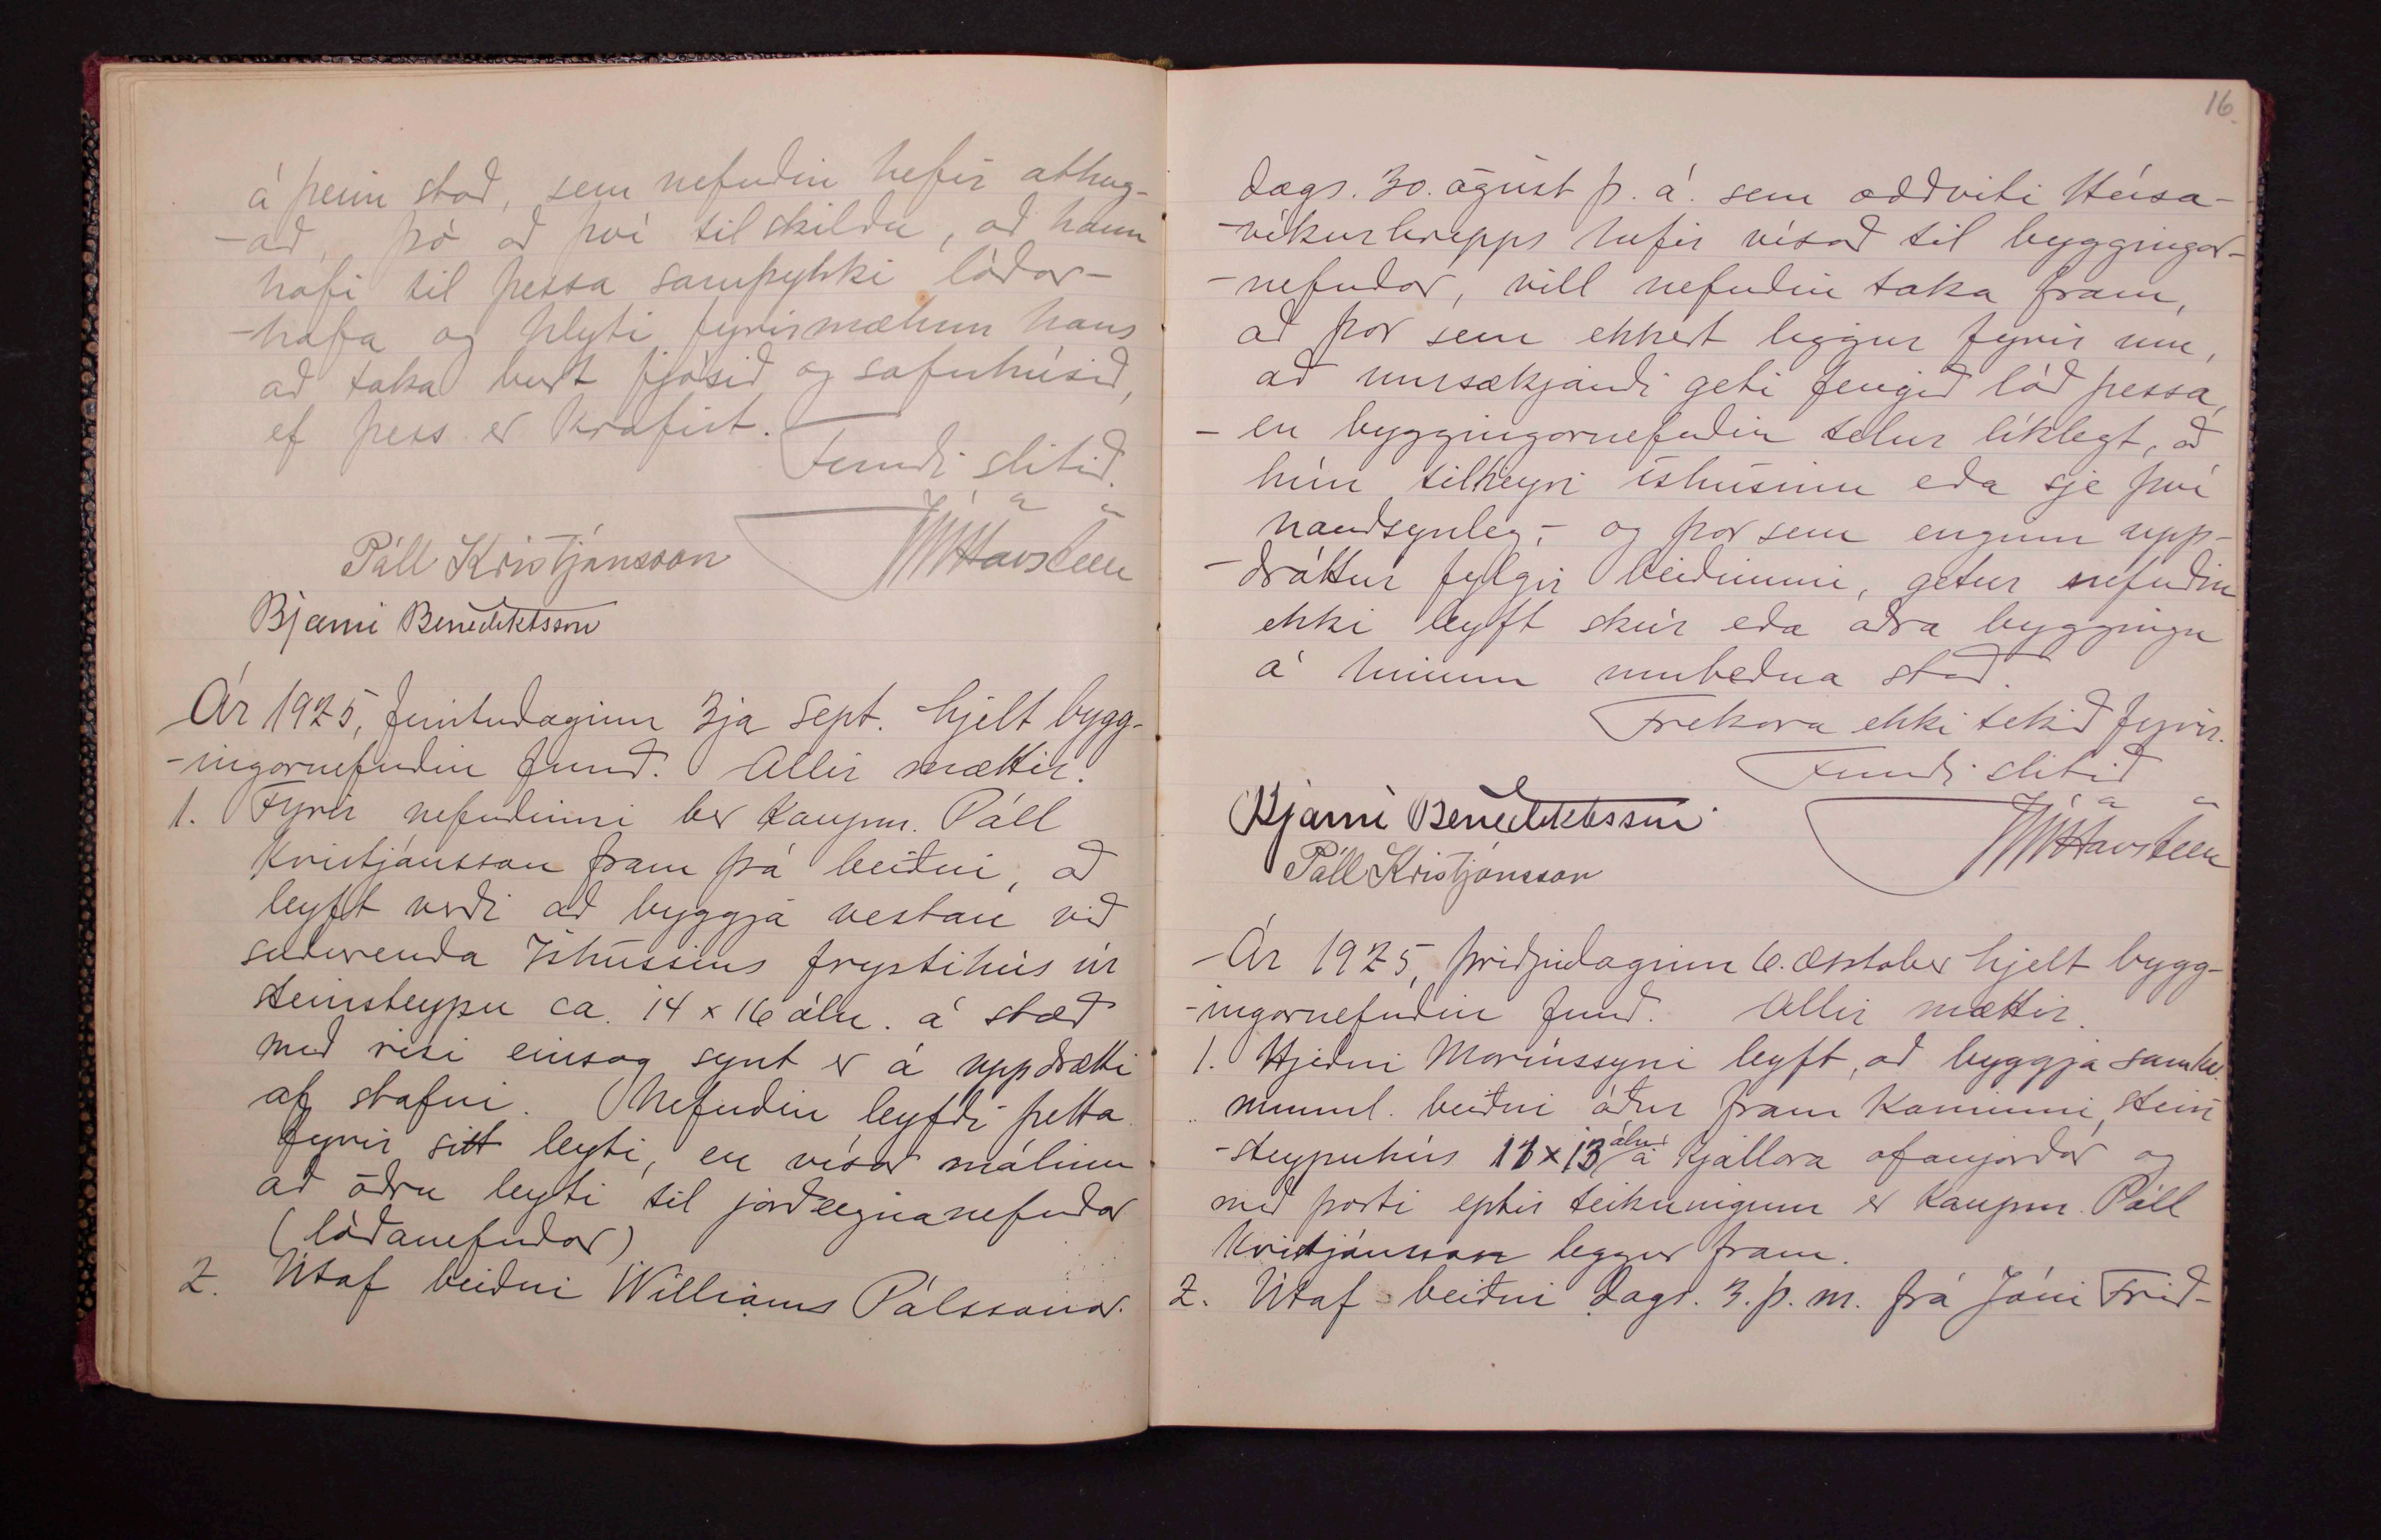 á þeim stað, sem nefndin hefir athug-
-að, þó að því tilskildu, að hann
hafi til þessa samþykki lóðar-
-hafa og hlyti fyrirmælum hans
að taka burt fjósið og safnhúsið,
ef þess er krafist.
Fundi slitið.
Páll Kristjánsson
JúlHavsteen
Bjarni Benediktsson
Ár 1925, fimtudaginn 3ja sept. hjelt bygg-
-ingarnefndin fund. Allir mættir.
1. Fyrir nefndinni ber kaupm. Páll
Kristjánsson fram þá beiðni, að
leyft verði að byggja vestan við
suðurenda Íshússins frystihús úr
steinsteypu ca. 14 x 16 áln. á stærð
með risi einsog synt er á uppdrætti
af stafni. Nefndin leyfði þetta
fyrir sitt leyti, en vísar málinu
að öðru leyti til jarðeignanefndar
(lóðanefndar)
2. Útaf beiðni Williams Pálssonar
16.
dags. 30. ágúst þ. á. sem oddviti Húsa-
-víkurhrepps hefir vísað til byggingar-
-nefndar, vill nefndin taka fram,
að þar sem ekkert liggur fyrir um,
að umsækjandi geti fengið lóð þessa,
- en byggingarnefndin telur líklegt, að
hún tilheyri íshúsinu eða sje því
nauðsynleg, - og þar sem enginn upp-
-dráttur fylgir beiðninni, getur nefndin
ekki leyft skúr eða aðra byggingu
á hinum umbeðna stað.
Frekara ekki tekið fyrir.
Fundi slitið
Bjarni Benediktsson
JúlHavsteen
Páll Kristjánsson
Ár 1925, þriðjudaginn 6. október hjelt bygg-
-ingarnefndin fund. Allir mættir.
1. Hjeðni Maríussyni leyft, að byggja samkv.
munnl. beiðni áður fram kominni, stein
-steypuhús 11 x 13 áln. á kjallara ofanjarðar og
með porti eptir teikningum er kaupm. Páll
Kristjánsson leggur fram.
2. Útaf beiðni dags. 3. þ. m. frá Jóni Frið-